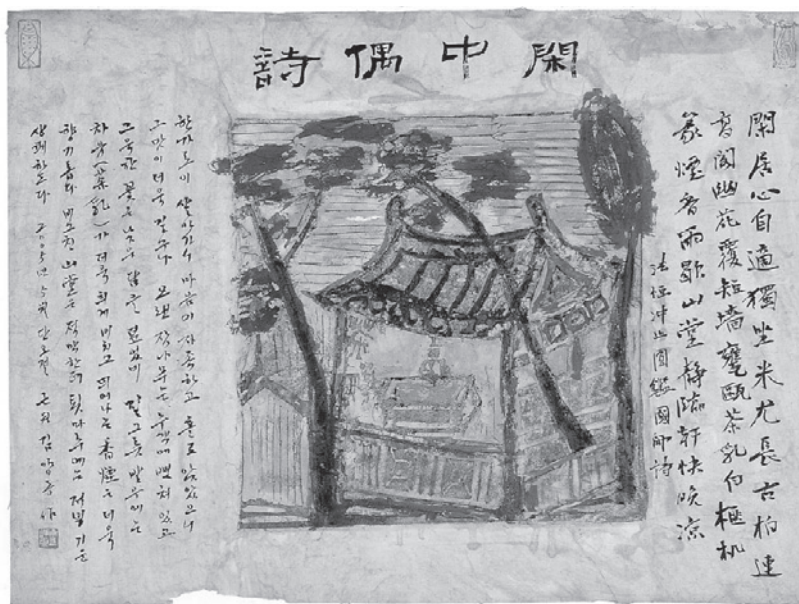 閑中偶詩
閑居心自適獨坐味尤長古柏連
高閣幽花覆短墻甆甌茶乳白榧机
篆煙香雨歇山堂靜臨軒快晚凉
冲止圓鑑國師詩
한가로이 살아가니 마음이 자족하고 홀로 앉았으니
그 맛이 더욱 길구나 오랜 잣나무는 누각에 뻗쳐 있고
그윽한 꽃은 낮은 담을 덮었네 질그릇 발우에는
차유(茶乳)가 더욱 희게 비치고 피어나는 香煙은 더욱
향기롭다 비그친 山堂은 적막한데 툇마루에는 저녁 기운
상쾌하도다 二〇〇五년 五月 단오절 근원 김양동 作